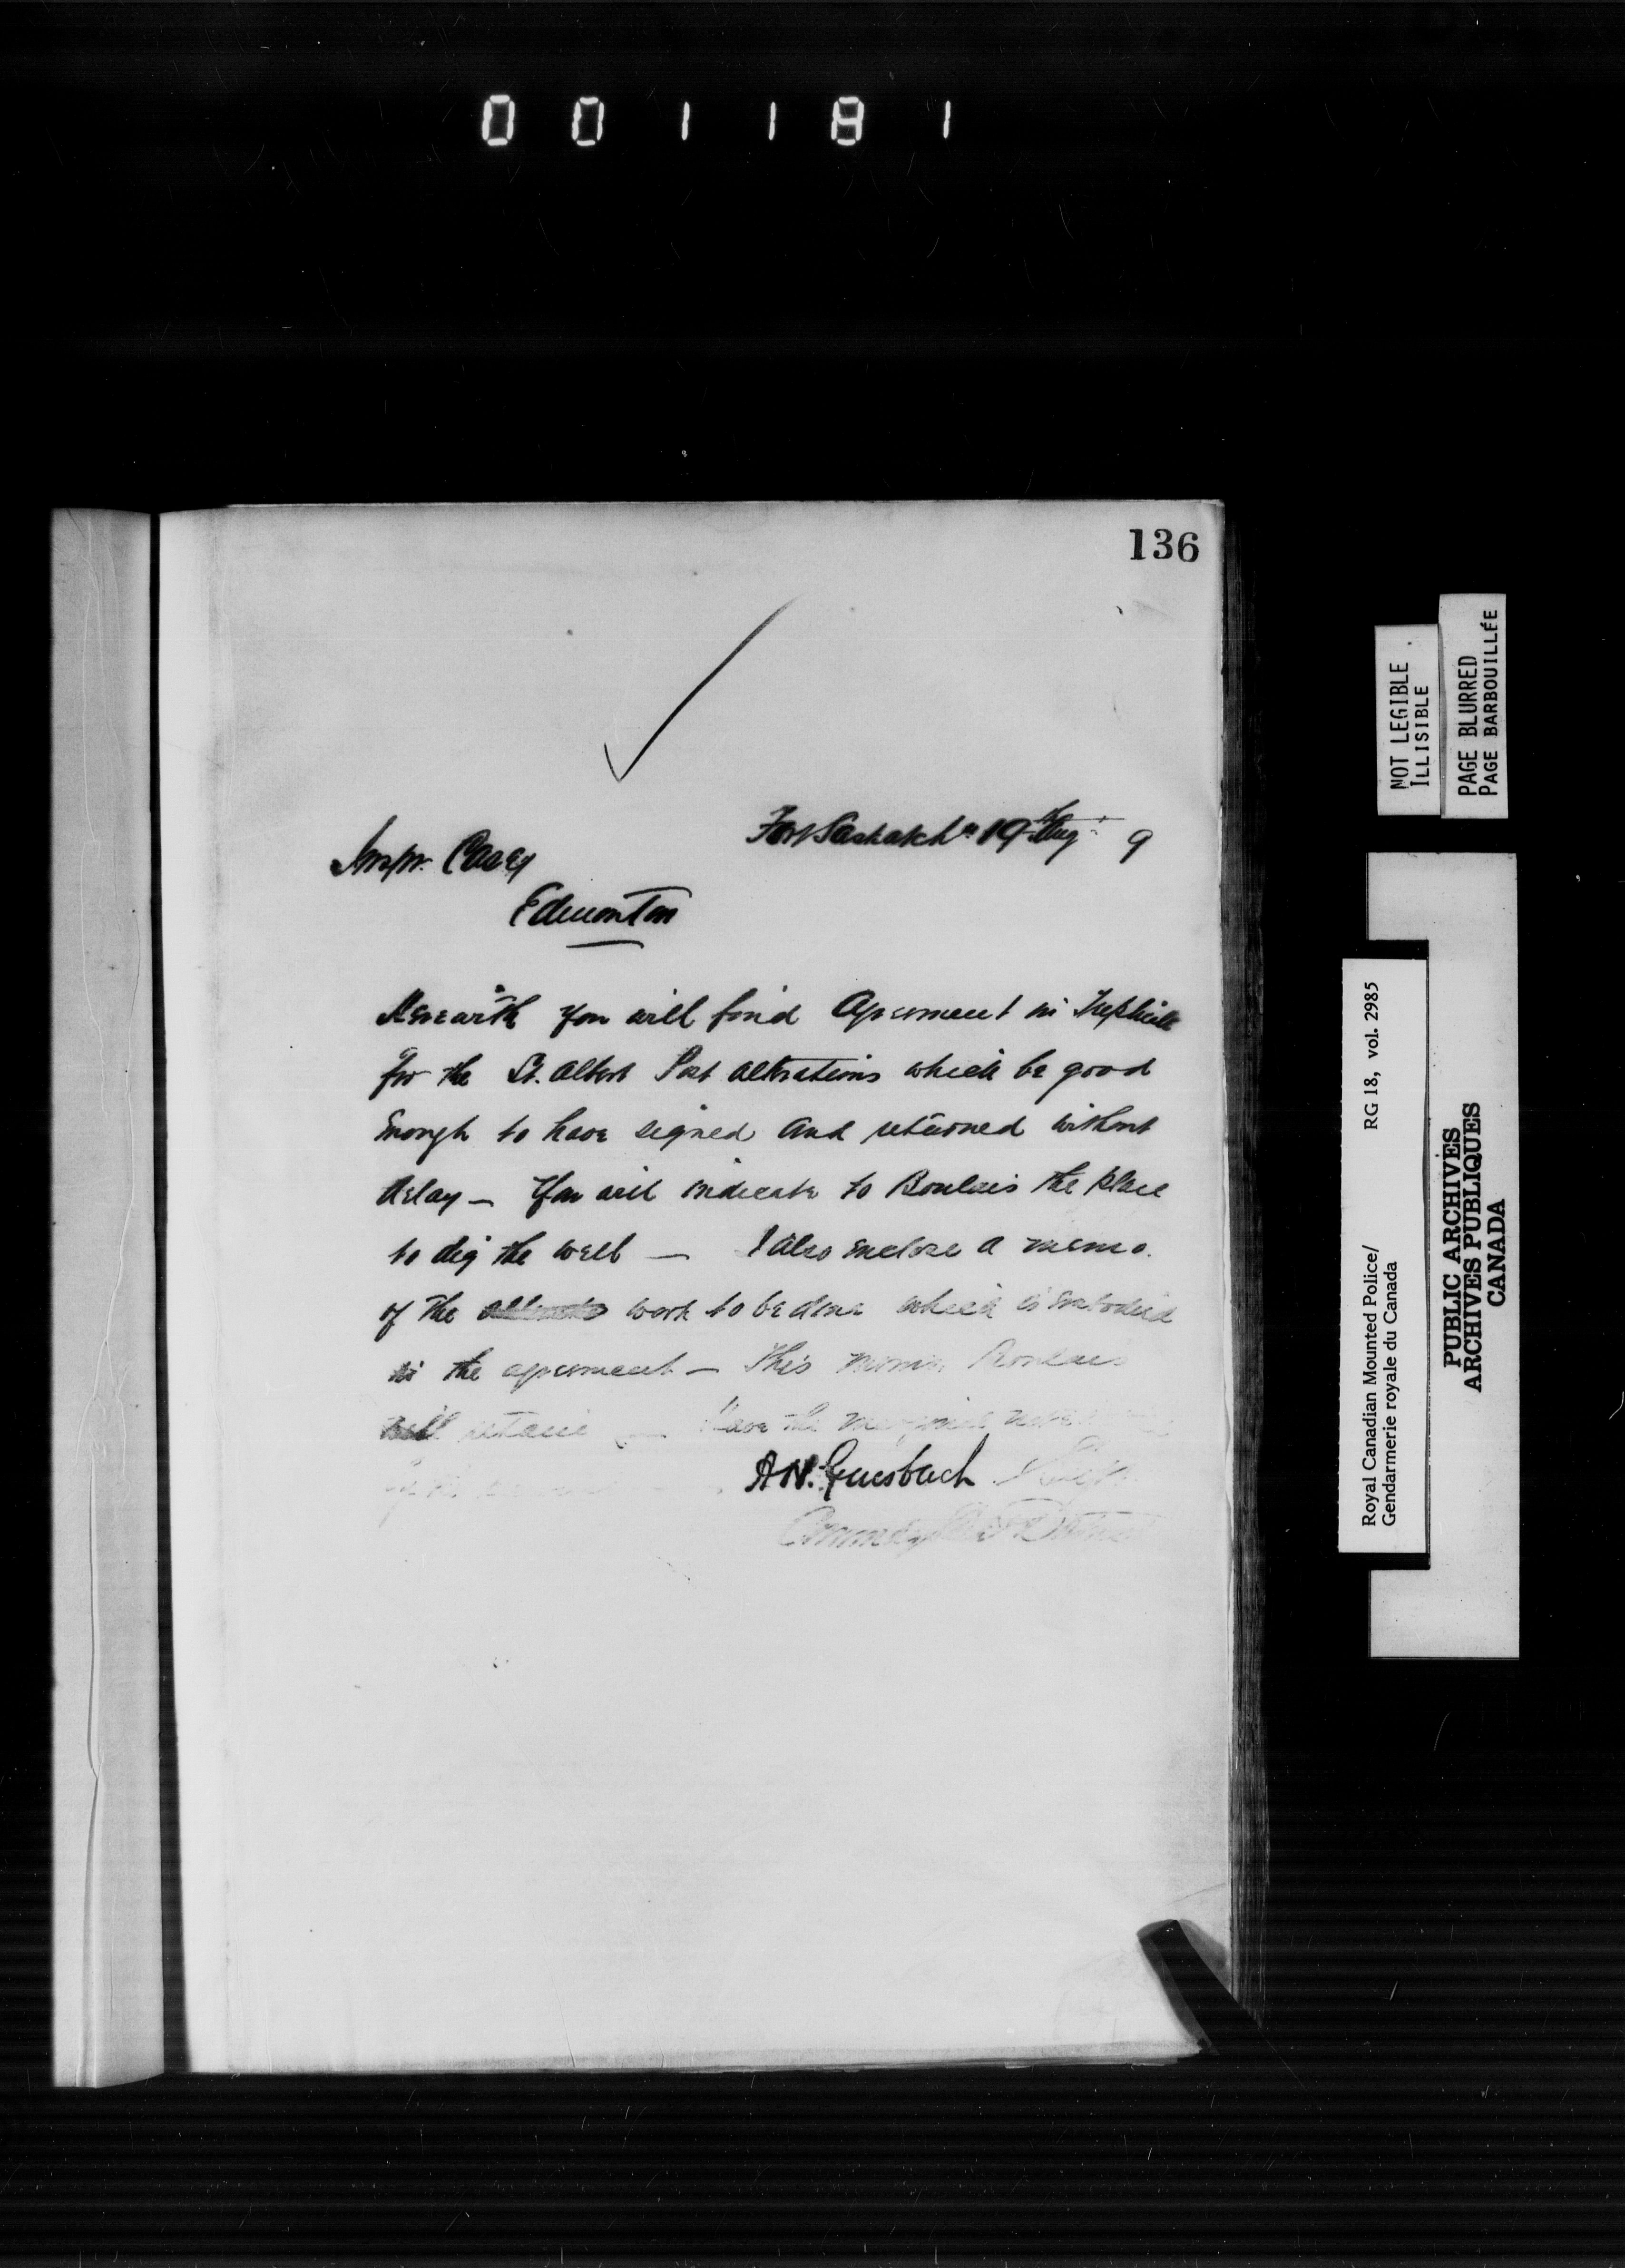 001181
136
Fort Saskatchn 19th Aug 9
Inspr. Casey
Edmonton
Herewith you will find Agreement in Triplicate
for the St. Albert Post alterations which be good
enough to have signed and returned without
delay — You will indicate to Boulais the place
to dig the well — I also enclose a memo.
of the work to be done which is embodied
in the agreement — This memo Boulais
will retain — Have the
A.H. Griesbach Supt
Commdg District
NOT LEGIBLE
ILLISIBLE
PAGE BLURRED
PAGE BARBOUILLÉE
Royal Canadian Mounted Police/ RG 18, vol. 2985
Gendarmerie royale du Canada
PUBLIC ARCHIVES
ARCHIVES PUBLIQUES
CANADA